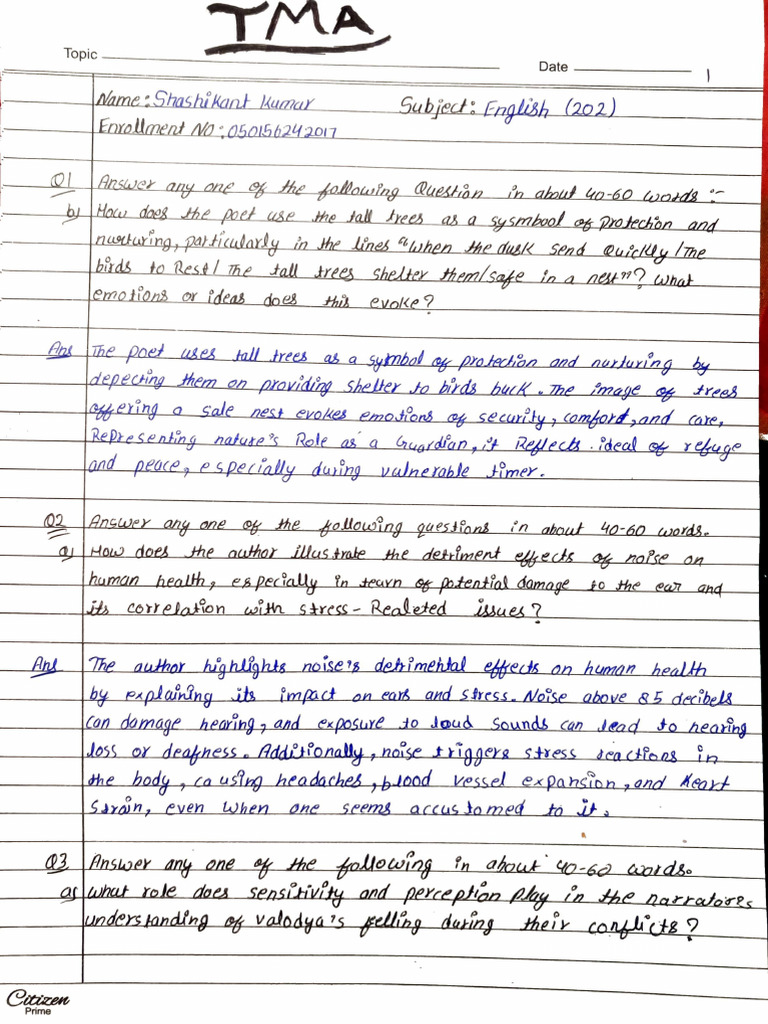 TMA
Topic Date 1
Name: Shashikant Kumar Subject: English (202)
Enrollment NO: 050156242017
Q1 Answer any one of the following Question in about 40-60 words :-
b) How does the poet use the tall trees as a sysmbool of protection and
nurturing, particularly in the lines "when the dusk send Quickly/The
birds to Rest/ The tall trees shelter them/safe in a nest"? what
emotions or ideas does this evoke?
Ans The poet uses tall trees as a symbol of protection and nurturing by
depecting them on providing shelter to birds buck. The image of trees
offering a sale nest evokes emotions of security, comford, and care,
Representing nature's Role as a Guardian, it Reflects. ideal of refuge
and peace, especially during vulnerable timer.
Q2 Answer any one of the following questions in about 40-60 words.
a) How does the author illustrate the detriment effects of noise on
human health, especially in tearn of potential damage to the ear and
its correlation with stress - Realeted issues?
Ans The author highlights noise's detrimental effects on human health
by explaining its impact on ears and stress. Noise above 85 decibels
can damage hearing, and exposure to loud sounds can lead to hearing
loss or deafness. Additionally, noise triggers stress reactions in
the body, causing headaches, blood vessel expansion, and heart
strain, even when one seems accustomed to it.
Q3 Answer any one of the following in about 40-60 words.
a) what role does sensitivity and perception play in the narratores
understanding of valodya's felling during their conflicts?
Citizen
Prime